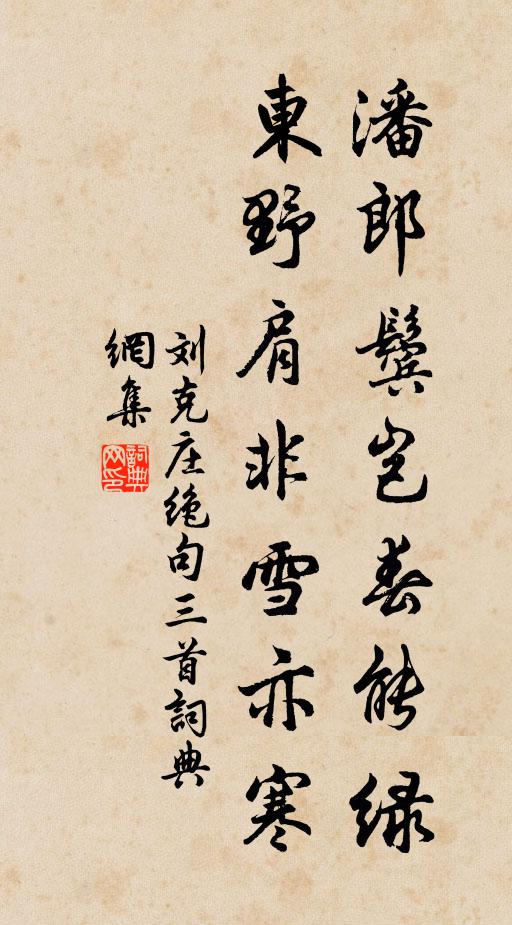 潘郎鬓岂春能緑
東野肩非雪亦寒
刘克庄绝句三首詞典
網集
詞典网印